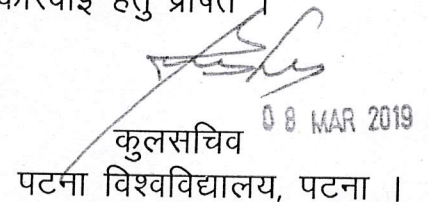 हेतु प्रेषित ।
08 MAR 2019
कुलसचिव
पटना विश्वविद्यालय, पटना ।